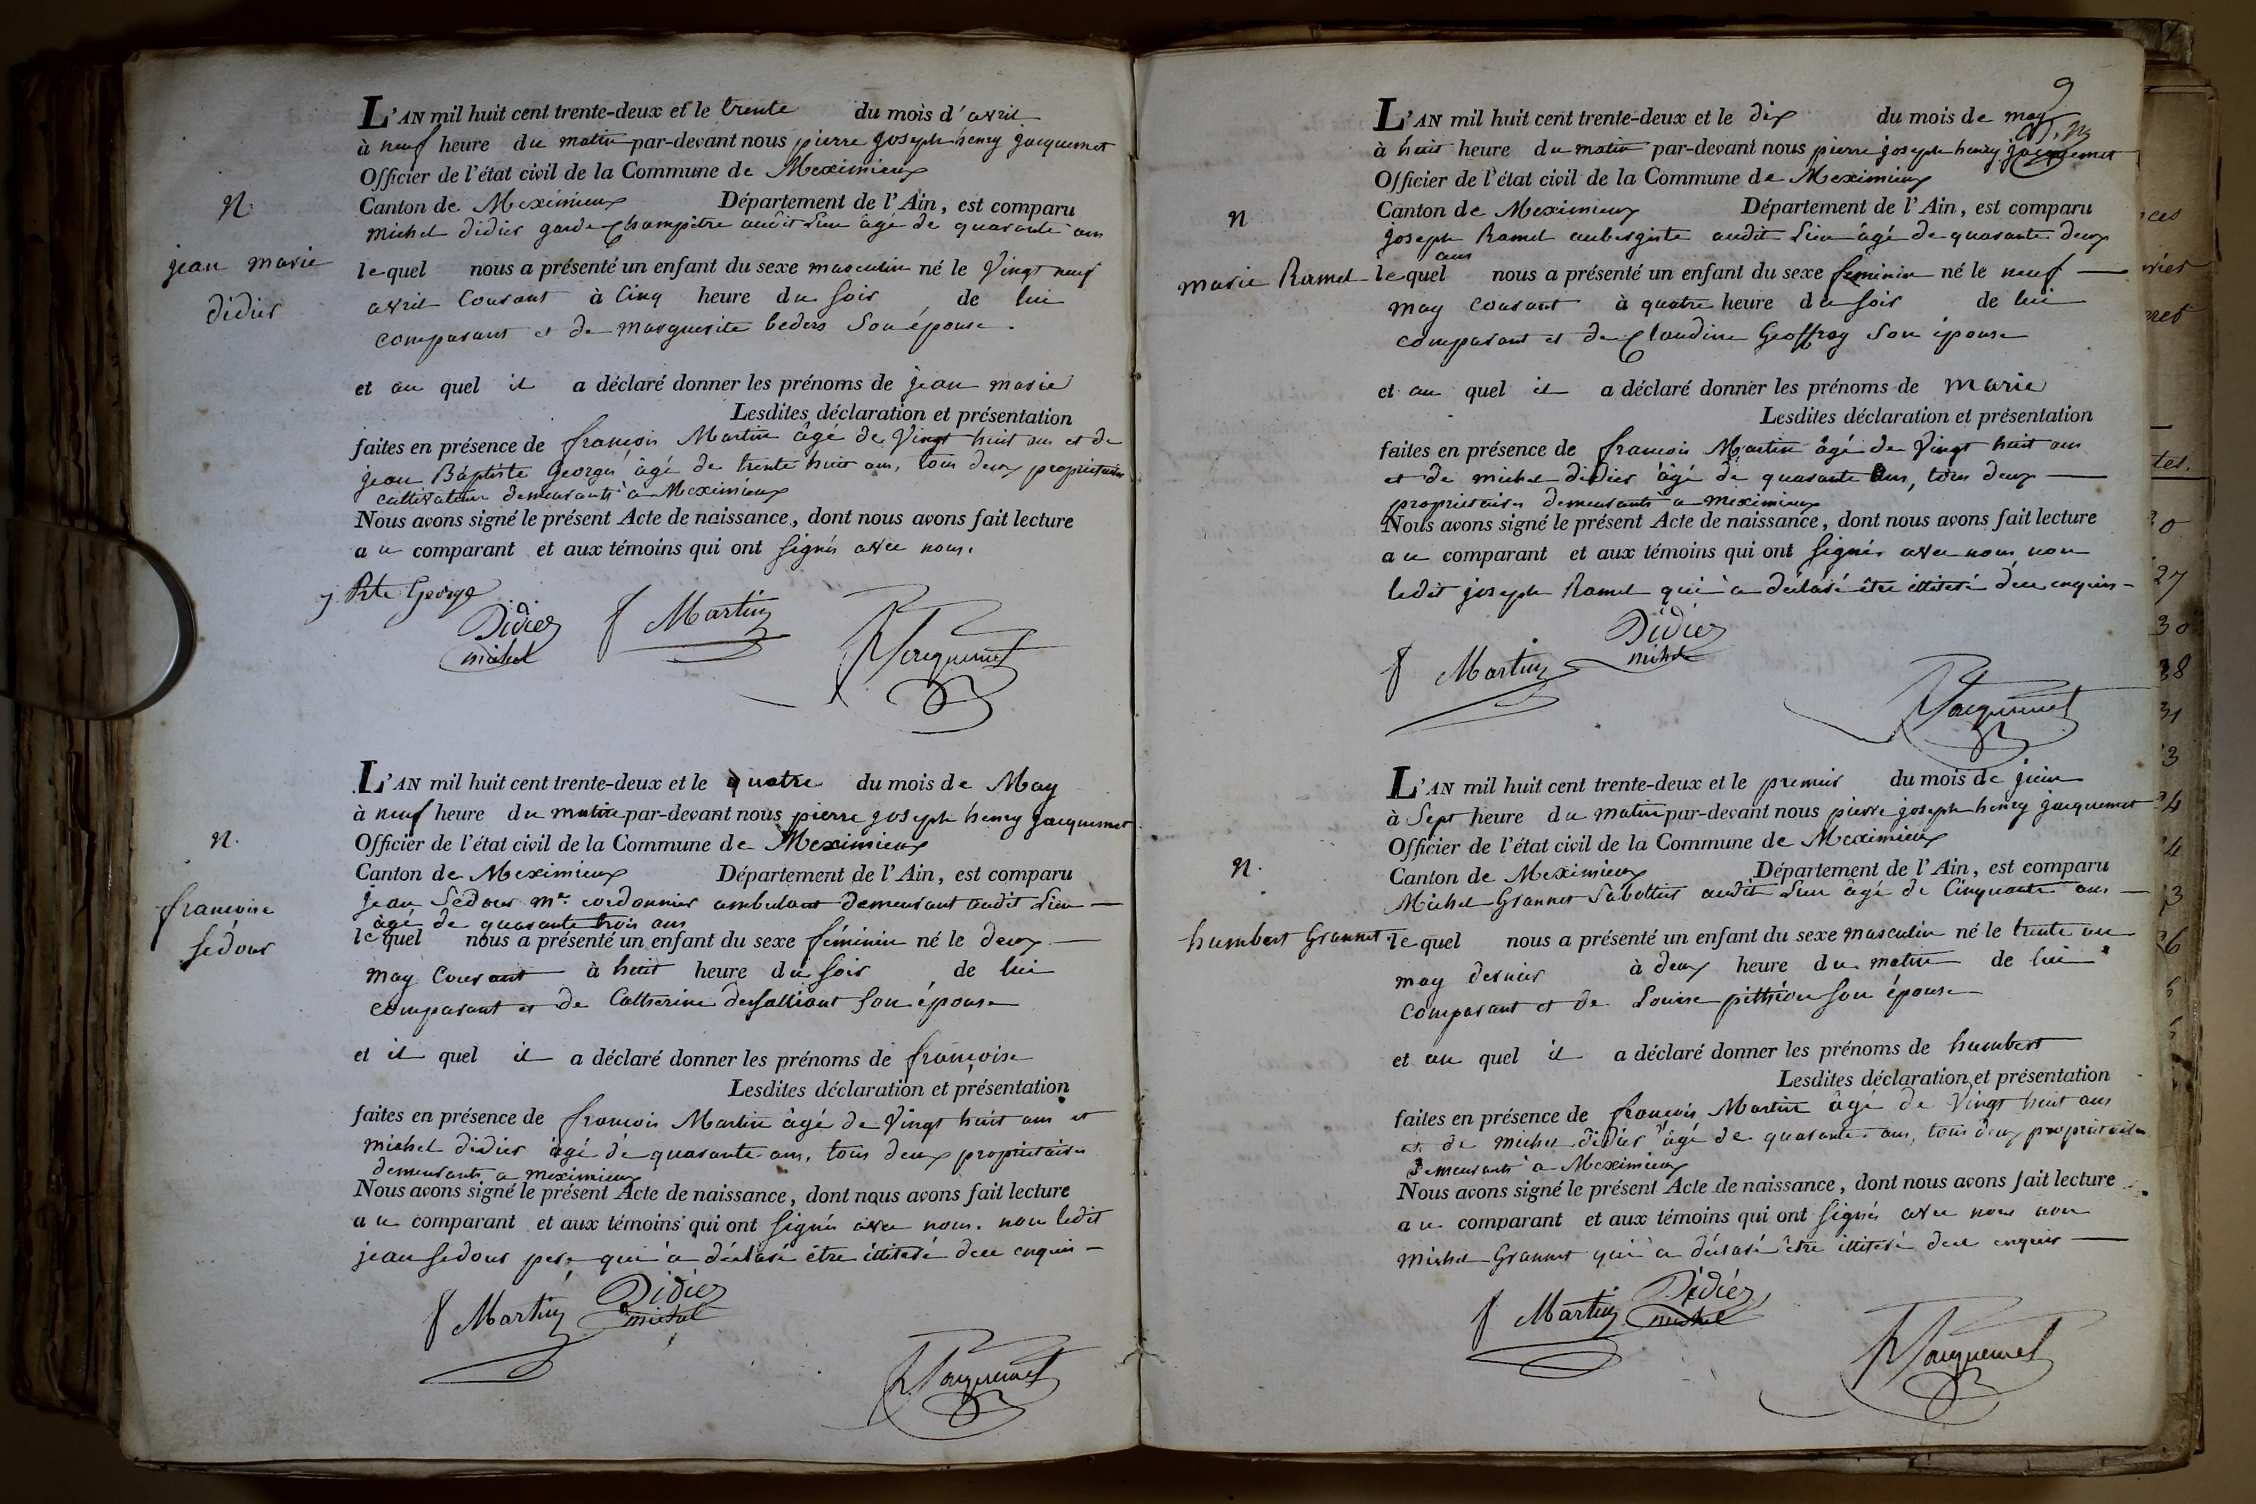 L'AN mil huit cent trente-deux et le trente du mois d'avril
à neuf heure du matin par-devant nous pierre joseph henry jacquemet
Officier de l'état civil de la Commune de Meximieux
Canton de Meximieux Département de l'Ain, est comparu
michel didier garde champêtre audit Lieu âgé de quarante ans
lequel nous a présenté un enfant du sexe masculin né le Vingt neuf
avril Courant à Cinq heure du soir de lui
comparant et de marguerite beders Son épouse.
et au quel il a déclaré donner les prénoms de jean marie
Lesdites déclaration et présentation
faites en présence de françois Martin âgé de Vingt huit ans et de
jean Baptiste Georges âgé de trente huit ans, tous deux proprietaires
cultivateurs demeurants à Meximieux
Nous avons signé le présent Acte de naissance, dont nous avons fait lecture
au comparant et aux témoins qui ont signés avec nous.
n.
jean marie
didier
j Bte George
Didier
michel
f Martin
Jacquemet
L'AN mil huit cent trente-deux et le quatre du mois de May
à neuf heure du matin par-devant nous pierre joseph henry jacquemet
Officier de l'état civil de la Commune de Meximieux
Canton de Meximieux Département de l'Ain, est comparu
jean Sedour me. cordonnier ambulant demeurant audit Lieu
âgé de quarante trois ans
lequel nous a présenté un enfant du sexe féminin né le deux
may Courant à huit heure du soir de lui
comparant et de Catherine son épouse
et il quel il a déclaré donner les prénoms de françoise
Lesdites déclaration et présentation
faites en présence de françois Martin âgé de Vingt huit ans et
michel didier âgé de quarante ans, tous deux proprietaires
demeurants a meximieux
Nous avons signé le présent Acte de naissance, dont nous avons fait lecture
au comparant et aux témoins qui ont signés avec nous. non ledit
jean sedour pere qui a déclaré être illiteré de ce enquis
n.
francoise
sedour
f Martin
Didier
michel
Jacquemet
9
L'AN mil huit cent trente-deux et le dix du mois de may
à huit heure du matin par-devant nous pierre joseph henry jacquemet
Officier de l'état civil de la Commune de Meximieux
Canton de Meximieux Département de l'Ain, est comparu
joseph Ramel aubergiste audit Lieu âgé de quarante deux
ans
lequel nous a présenté un enfant du sexe feminin né le neuf
may courant à quatre heure du soir de lui
comparant et de Claudine Geoffray Son épouse
et au quel il a déclaré donner les prénoms de marie
Lesdites déclaration et présentation
faites en présence de francois Martin âgé de Vingt huit ans
et de michel didier âgé de quarante ans, tous deux
proprietaires demeurants a meximieux
Nous avons signé le présent Acte de naissance, dont nous avons fait lecture
au comparant et aux témoins qui ont signés avec nous non
ledit joseph Ramel qui a déclaré être illiteré de ce enquis
n
marie Ramel
f Martin
Didier
michel
Jacquemet
L'AN mil huit cent trente-deux et le premier du mois de juin
à Sept heure du matin par-devant nous pierre joseph henry jacquemet
Officier de l'état civil de la Commune de Meximieux
Canton de Meximieux Département de l'Ain, est comparu
Michel Grannet Sabottier audit Lieu âgé de Cinquante ans
lequel nous a présenté un enfant du sexe masculin né le trente un
may dernier à deux heure du matin de lui
comparant et de Louise pithiou son épouse
et au quel il a déclaré donner les prénoms de humbert
Lesdites déclaration et présentation
faites en présence de françois Martin âgé de Vingt huit ans
et de michel didier âgé de quarante ans, tous deux proprietaires
demeurants a Meximieux
Nous avons signé le présent Acte de naissance, dont nous avons fait lecture
au comparant et aux témoins qui ont signés avec nous non
michel Grannet qui a déclaré être illiteré de ce enquis
n.
humbert Grannet
f Martin
Didier
michel
Jacquemet